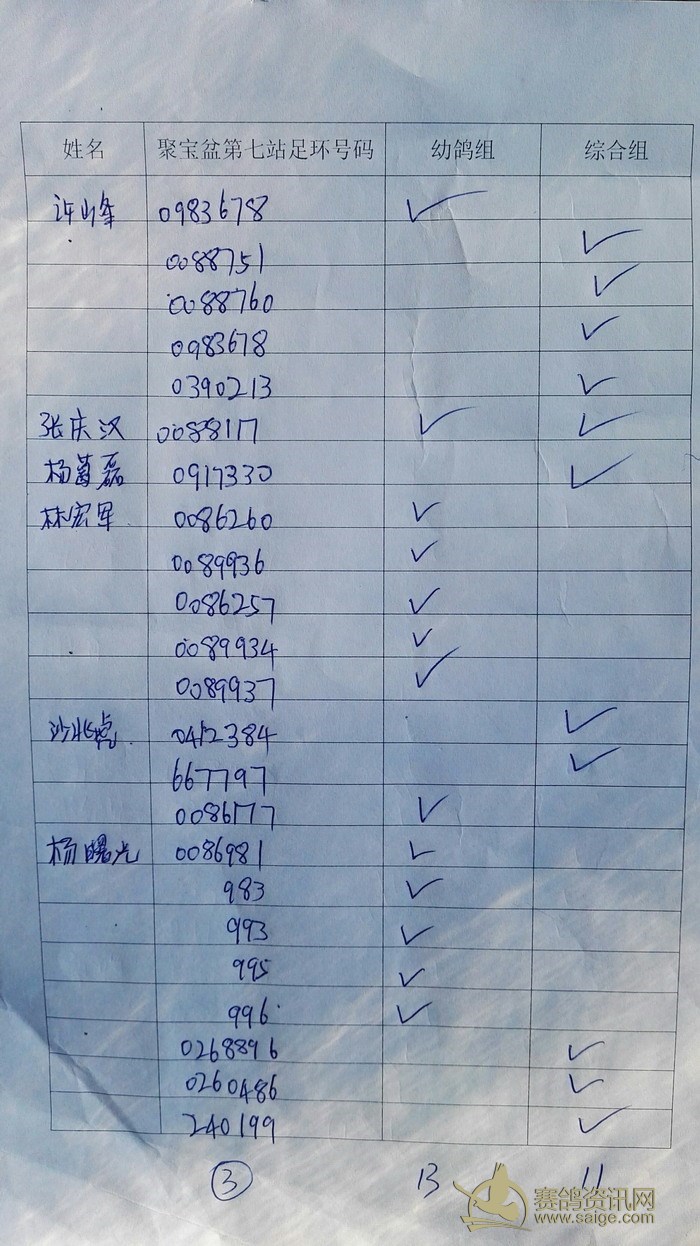 姓名 聚宝盆第七站足环号码 幼鸽组 综合组
许峰 0983678 ✓
0088751 ✓
0088760 ✓
0983678 ✓
0390213 ✓
张庆汉 0088117 ✓ ✓
杨磊 0917330 ✓
林宏军 0086260 ✓
0089936 ✓
0086257 ✓
0089934 ✓
0089937 ✓
沙兆虎 0412384 ✓
667797 ✓
0086177 ✓
杨曙光 0086981 ✓
983 ✓
993 ✓
995 ✓
996 ✓
0268896 ✓
0260486 ✓
240199 ✓
③ 13 11
赛鸽资讯网
www.saige.com